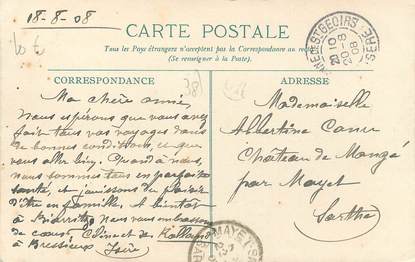 18-8-08
CARTE POSTALE
Tous les Pays étrangers n'acceptent pas la Correspondance au recto
(Se renseigner à la Poste)
CORRESPONDANCE
ADRESSE
Ma chère amie,
Nous espérons que vous avez
fait tous vos voyages dans
de bonnes conditions, et que
vous allez bien. Quand à nous,
nous sommes tous en parfaite
santé, et jouissons du plaisir
d'être en famille. A bientôt
à Biarritz. Nous vous embrassons
de cœur,
à Bressieux Isère
Mademoiselle
Albertine
Château de
par Mayet
Sarthe
20-8
08
ISÈRE
MAYET